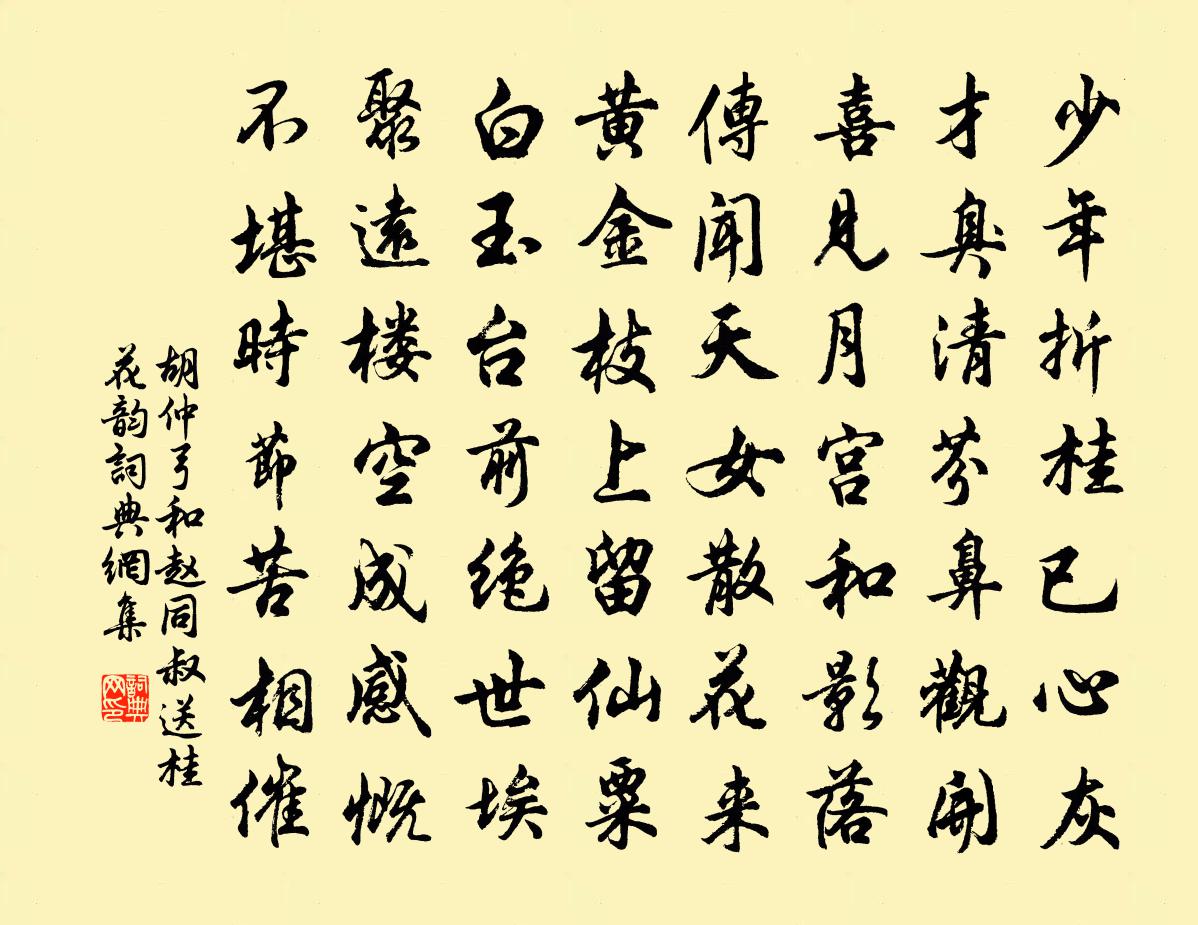 少年折桂已心灰
才臭清芬鼻觀開
喜見月宫和影落
傳聞天女散花来
黄金枝上留仙粟
白玉台前绝世埃
聚遠楼空成感慨
不堪時節苦相催
胡仲弓和赵同叔送桂
花韵詞典網集
詞典
网印